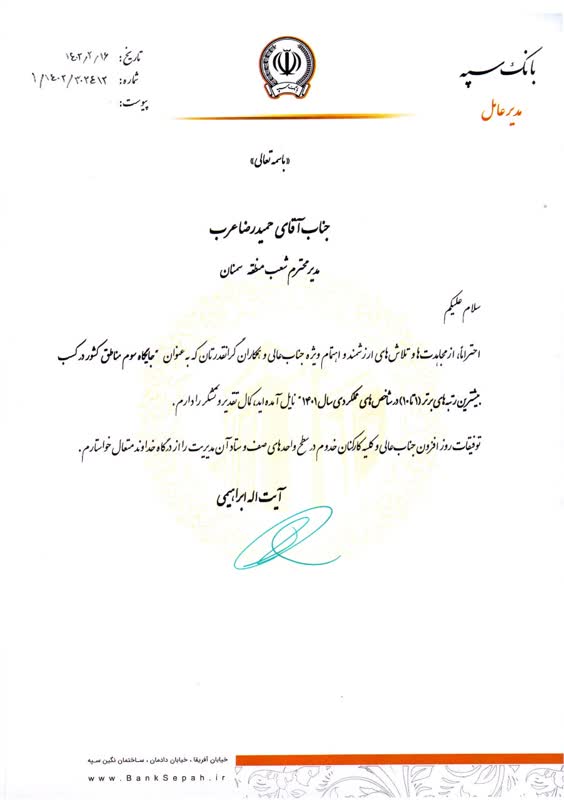 بانک سپه
مدیر عامل
تاریخ: ۱۴۰۲٫۲٫۱۶
شماره: ۱/۱۴۰۲/۳۰۲۴۱۳
پیوست:
بانک سپه
«باسمه تعالی»
جناب آقای حمیدرضا عرب
مدیر محترم شعب منطقه سمنان
سلام علیکم
احتراماً، از مجاهدت ها و تلاش های ارزشمند و اهتمام ویژه جناب عالی و همکاران گرانقدرتان که به عنوان "جایگاه سوم مناطق کشور در کسب
بیشترین رتبه های برتر (۱ تا ۱۰) در شاخص های عملکردی سال ۱۴۰۱" نایل آمده اید، کمال تقدیر و تشکر را دارم.
توفیقات روز افزون جناب عالی و کلیه کارکنان خدوم در سطح واحدهای صف و ستاد آن مدیریت را از درگاه خداوند متعال خواستارم.
آیت اله ابراهیمی
خیابان آفریقا ، خیابان دادمان ، ساختمان نگین سپه
www.BankSepah.ir